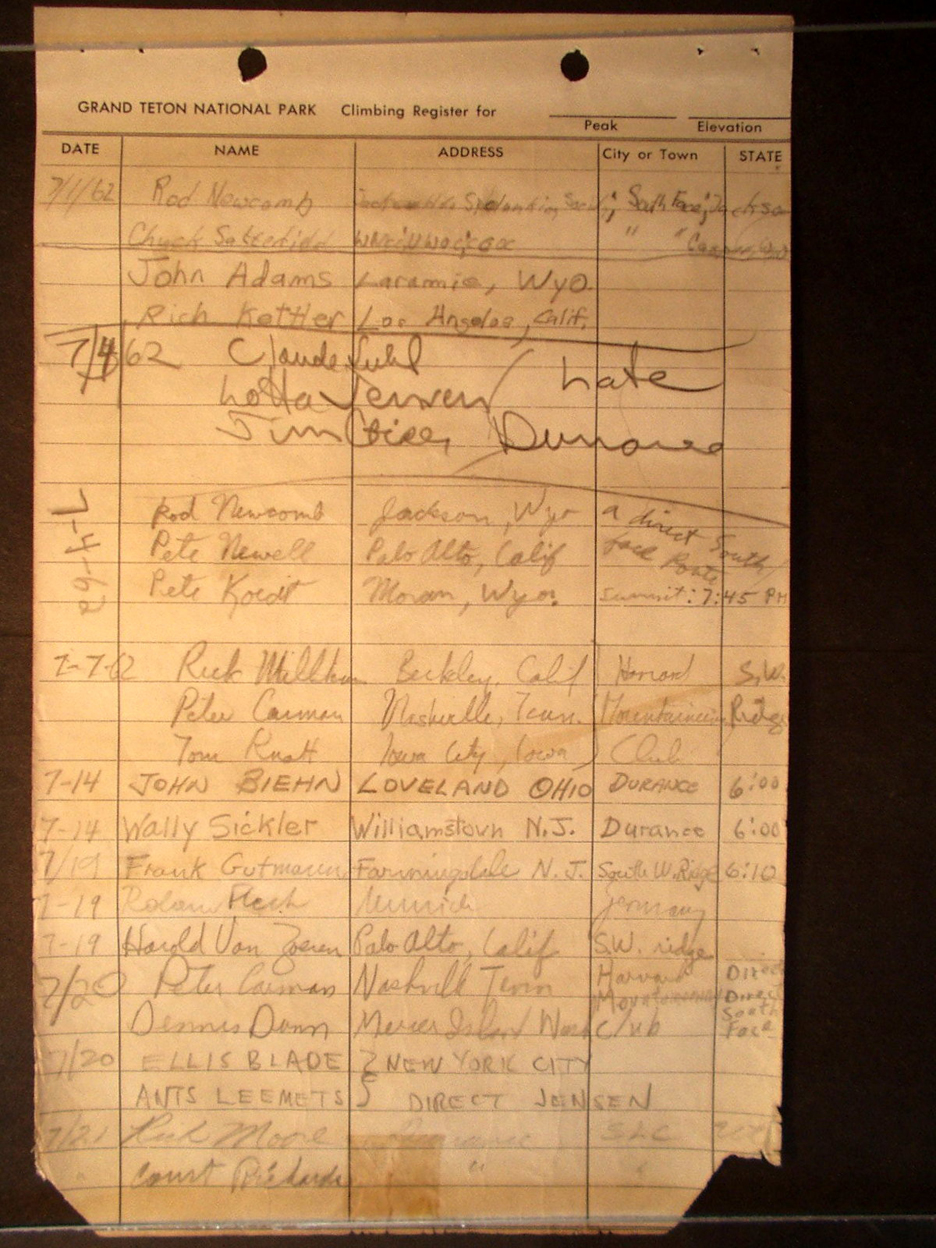 GRAND TETON NATIONAL PARK Climbing Register for
Peak Elevation
DATE NAME ADDRESS City or Town STATE
7/1/62 Rod Newcomb ; South Face;
Chuck " "
John Adams Laramie, Wyo.
Rich Kettler Los Angeles, Calif.
7/4/62 Claude
Lotta Jensen Late
Jim
7-4-62
Rod Newcomb Jackson, Wyo a direct South
Pete Newell Palo Alto, Calif face Route
Pete Koedt Moran, Wyo. summit: 7:45 PM
7-7-62 Rick Berkley, Calif Harvard S.W.
Peter Carman Nashville, Tenn. Mountaineering Ridge
Tom Knott Iowa City, Iowa Club
7-14 JOHN BIEHN LOVELAND OHIO DURANCE 6:00
7-14 Wally Sickler Williamstown N.J. Durance 6:00
7/19 Frank Gutmann Farmingdale N.J. South W. Ridge 6:10
7-19 Munich Germany
7-19 Harold Van Zoeren Palo Alto, Calif S.W. ridge
7/20 Peter Carman Nashville Tenn Harvard Direct
Mountaineering Direct
Dennis Dunn Mercer Island Wash Club South
Face
7/20 ELLIS BLADE } NEW YORK CITY
ANTS LEEMETS } DIRECT JENSEN
7/21 Rick Moore SLC
" Court Richards "